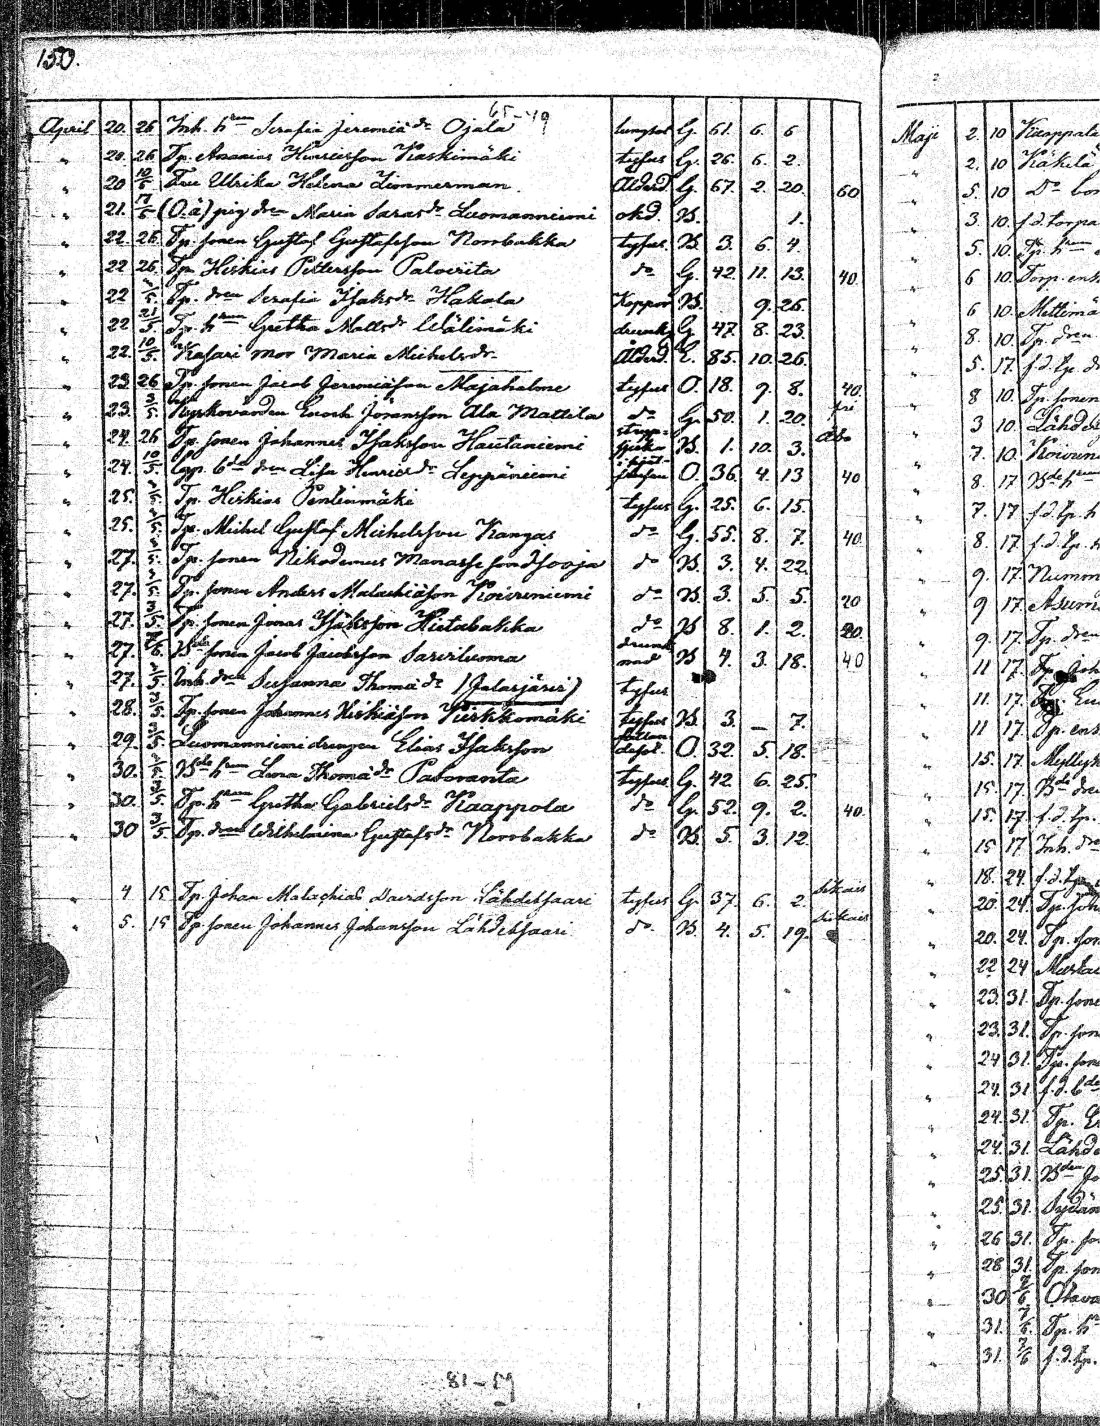 150.
65-49
April 20. 26 Inh. hrun Serafia Jeremiædr Ojala lungsot G. 61. 6. 6
" 20. 26 Tp. Ananias Henricsson Kaskimäki tyfus G. 26. 6. 2.
" 20 10/5 Fru Ulrika Helena Zimmerman. Ålderd. G. 67. 2. 20. 60
" 21. 17/5 (O.ä) pig drn Maria Sarasdr Luomanniemi okd. B. 1.
" 22. 26. Tp. sonen Gustaf Gustafsson Norrbakka tyfus. B. 3. 6. 4.
" 22 26. Tp. Heskias Pettersson Paloviita do G. 42. 11. 13. 40.
" 22 3/5. Tp. dren Serafia Isaksdr Hakala Koppor B. 9. 26.
" 22 21/5. Tp. hrun Gretha Mattsdr Wälimäki G. 47. 8. 23.
" 22. 10/5. Kasari mor Maria Michelsdr. Ålderd. E. 85. 10. 26.
" 23. 26 Tp. sonen Jacob Jeremiäson Majahalme tyfus O. 18. 9. 8. 40.
" 23. 3/5. Kyrkovärden Enoch Göransson Ala Mattila do G. 50. 1. 20. fri
" 24. 26 Tp. sonen Johannes Isaksson Hautaniemi strypsjuka B. 1. 10. 3.
" 24. 10/5. dren Lisa Henricsdr Leppäniemi O. 36. 4. 13 40
" 25. 3/5. Tp. Heskias Penlinmäki tyfus G. 25. 6. 15.
" 25. 3/5. Tp. Michel Gustaf Michelsson Kangas do G. 55. 8. 7. 40.
" 27. 3/5. Tp. sonen Nikodemus Manasseson Isooja do B. 3. 4. 22.
" 27. 3/5. Tp. sonen Anders Malachiäson Koivuniemi do B. 3. 5. 5. 20
" 27. 3/5. Tp. sonen Jonas Isaksson Hietabakka do B 8. 1. 2. 20.
" 27. 7/6. Bde sonen Jacob Jacobsson Sariluoma drunknad B 4. 3. 18. 40
" 27. 3/5. Inh. dren Susanna Thomædr (Jalasjärvi) tyfus
" 28. 3/5. Tp. sonen Johannes Heskiäson Pirkkomäki tyfus B. 3. _ 7.
" 29. 3/5. Luomanniemi drengen Elias Isaksson O. 32. 5. 18.
" 30. 3/5. Bde hrun Lena Thomædr Paloranta tyfus G. 42. 6. 25.
" 30. 3/5. Tp. hrun Gretha Gabrielsdr Kaappola do G. 52. 9. 2. 40.
" 30 3/5. Tp. dren Wilhelmina Gustafsdr Norrbakka do B. 5. 3. 12.
4 15 Tp. Johan Malachias Davidsson Lähdetsaari tyfus G. 37. 6. 2. Siikais
" 5. 15 Tp. sonen Johannes Johansson Lähdetsaari do. B. 4. 5. 19. Siikais
81-59
Maji 2. 10 Kaappola
" 2. 10 Käkelä
" 5. 10 Do
" 3. 10. f.d. torpa
" 5. 10. Tp. hrun
" 6 10. Torp. enk
" 6 10. Mettimä
" 8. 10. Tp. dren
" 5. 17. f.d. tp. d
" 8 10. Tp. sonen
" 3 10. Lähde
" 7. 10. Koivun
" 8. 17 Bde hrun
" 7. 17 f.d. tp. h
" 8. 17. f.d. tp.
" 9. 17. Numm
" 9 17. Asum
" 9. 17. Tp. dren
" 11 17. Tp. Joh
" 11. 17.
" 11 17. Tp. enk
" 15. 17. Myllyk
" 15. 17. Bde dre
" 15. 17. f.d. tp.
" 15 17. Inh. dre
" 18. 24. f.d. tp
" 20. 24. Tp. son
" 20. 24. Tp. son
" 22 24 Musta
" 23. 31. Tp. sone
" 23. 31. Tp. son
" 24 31. Tp. son
" 24. 31 f.d. bde
" 24. 31. Tp. E
" 24. 31. Lähde
" 25. 31. Bden Jo
" 25. 31. Sydän
" 26 31. Tp. so
" 28 31. Tp. son
" 30 7/6 Otava
" 31. 7/6. Tp. h
" 31. 7/6 f.d. tp.